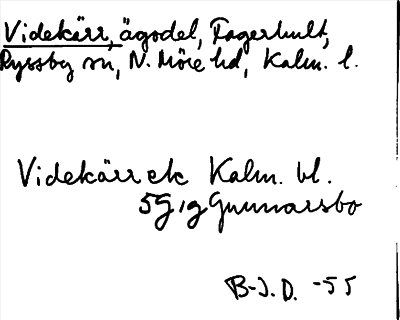 Videkärr, ägodel, Fagerhult,
Ryssby sn, N. Möre hd, Kalm. l.
Videkärr ek Kalm. bl.
5G ig Gunnarsbo
B-J.D. -55